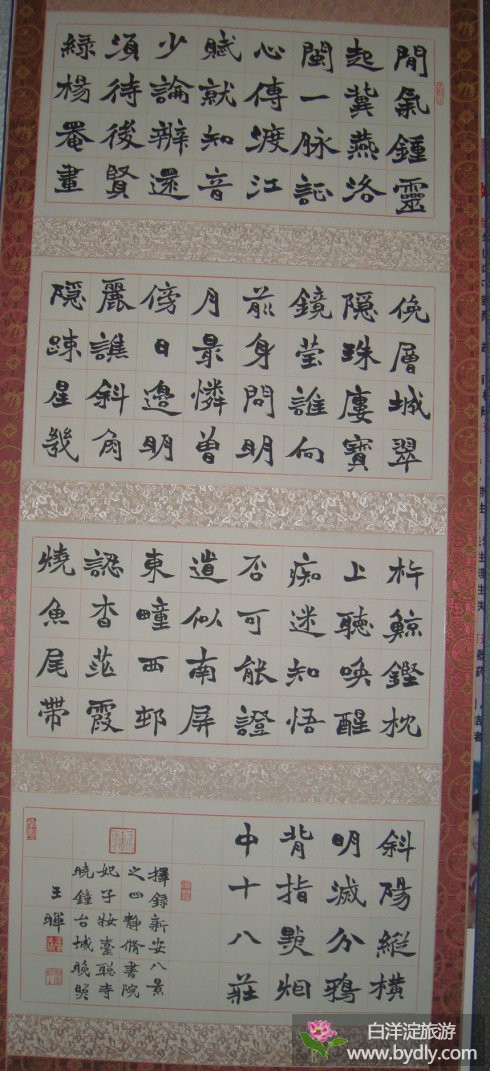 間氣鍾靈
起冀燕洛
閩一脉記
心傳渡江
賦就知音
少論辨還
須待後賢
綠楊罨畫
俛層城翠
隱珠廔寶
鏡瑩誰向
前身問明
月最憐曾
傍日邊明
麗譙斜角
隱踈星幾
杵鯨鏗枕
上聽喚醒
痴迷知悟
否可能證
道似南屏
東疃西邨
認杳茫霞
燒魚尾帶
斜陽縱橫
明滅分鴉
背指點烟
中十八莊
擇録新安八景
之四靜脩書院
妃子妝臺聰寺
曉鐘台城晚照
王暉
白洋淀旅游
www.bydly.com